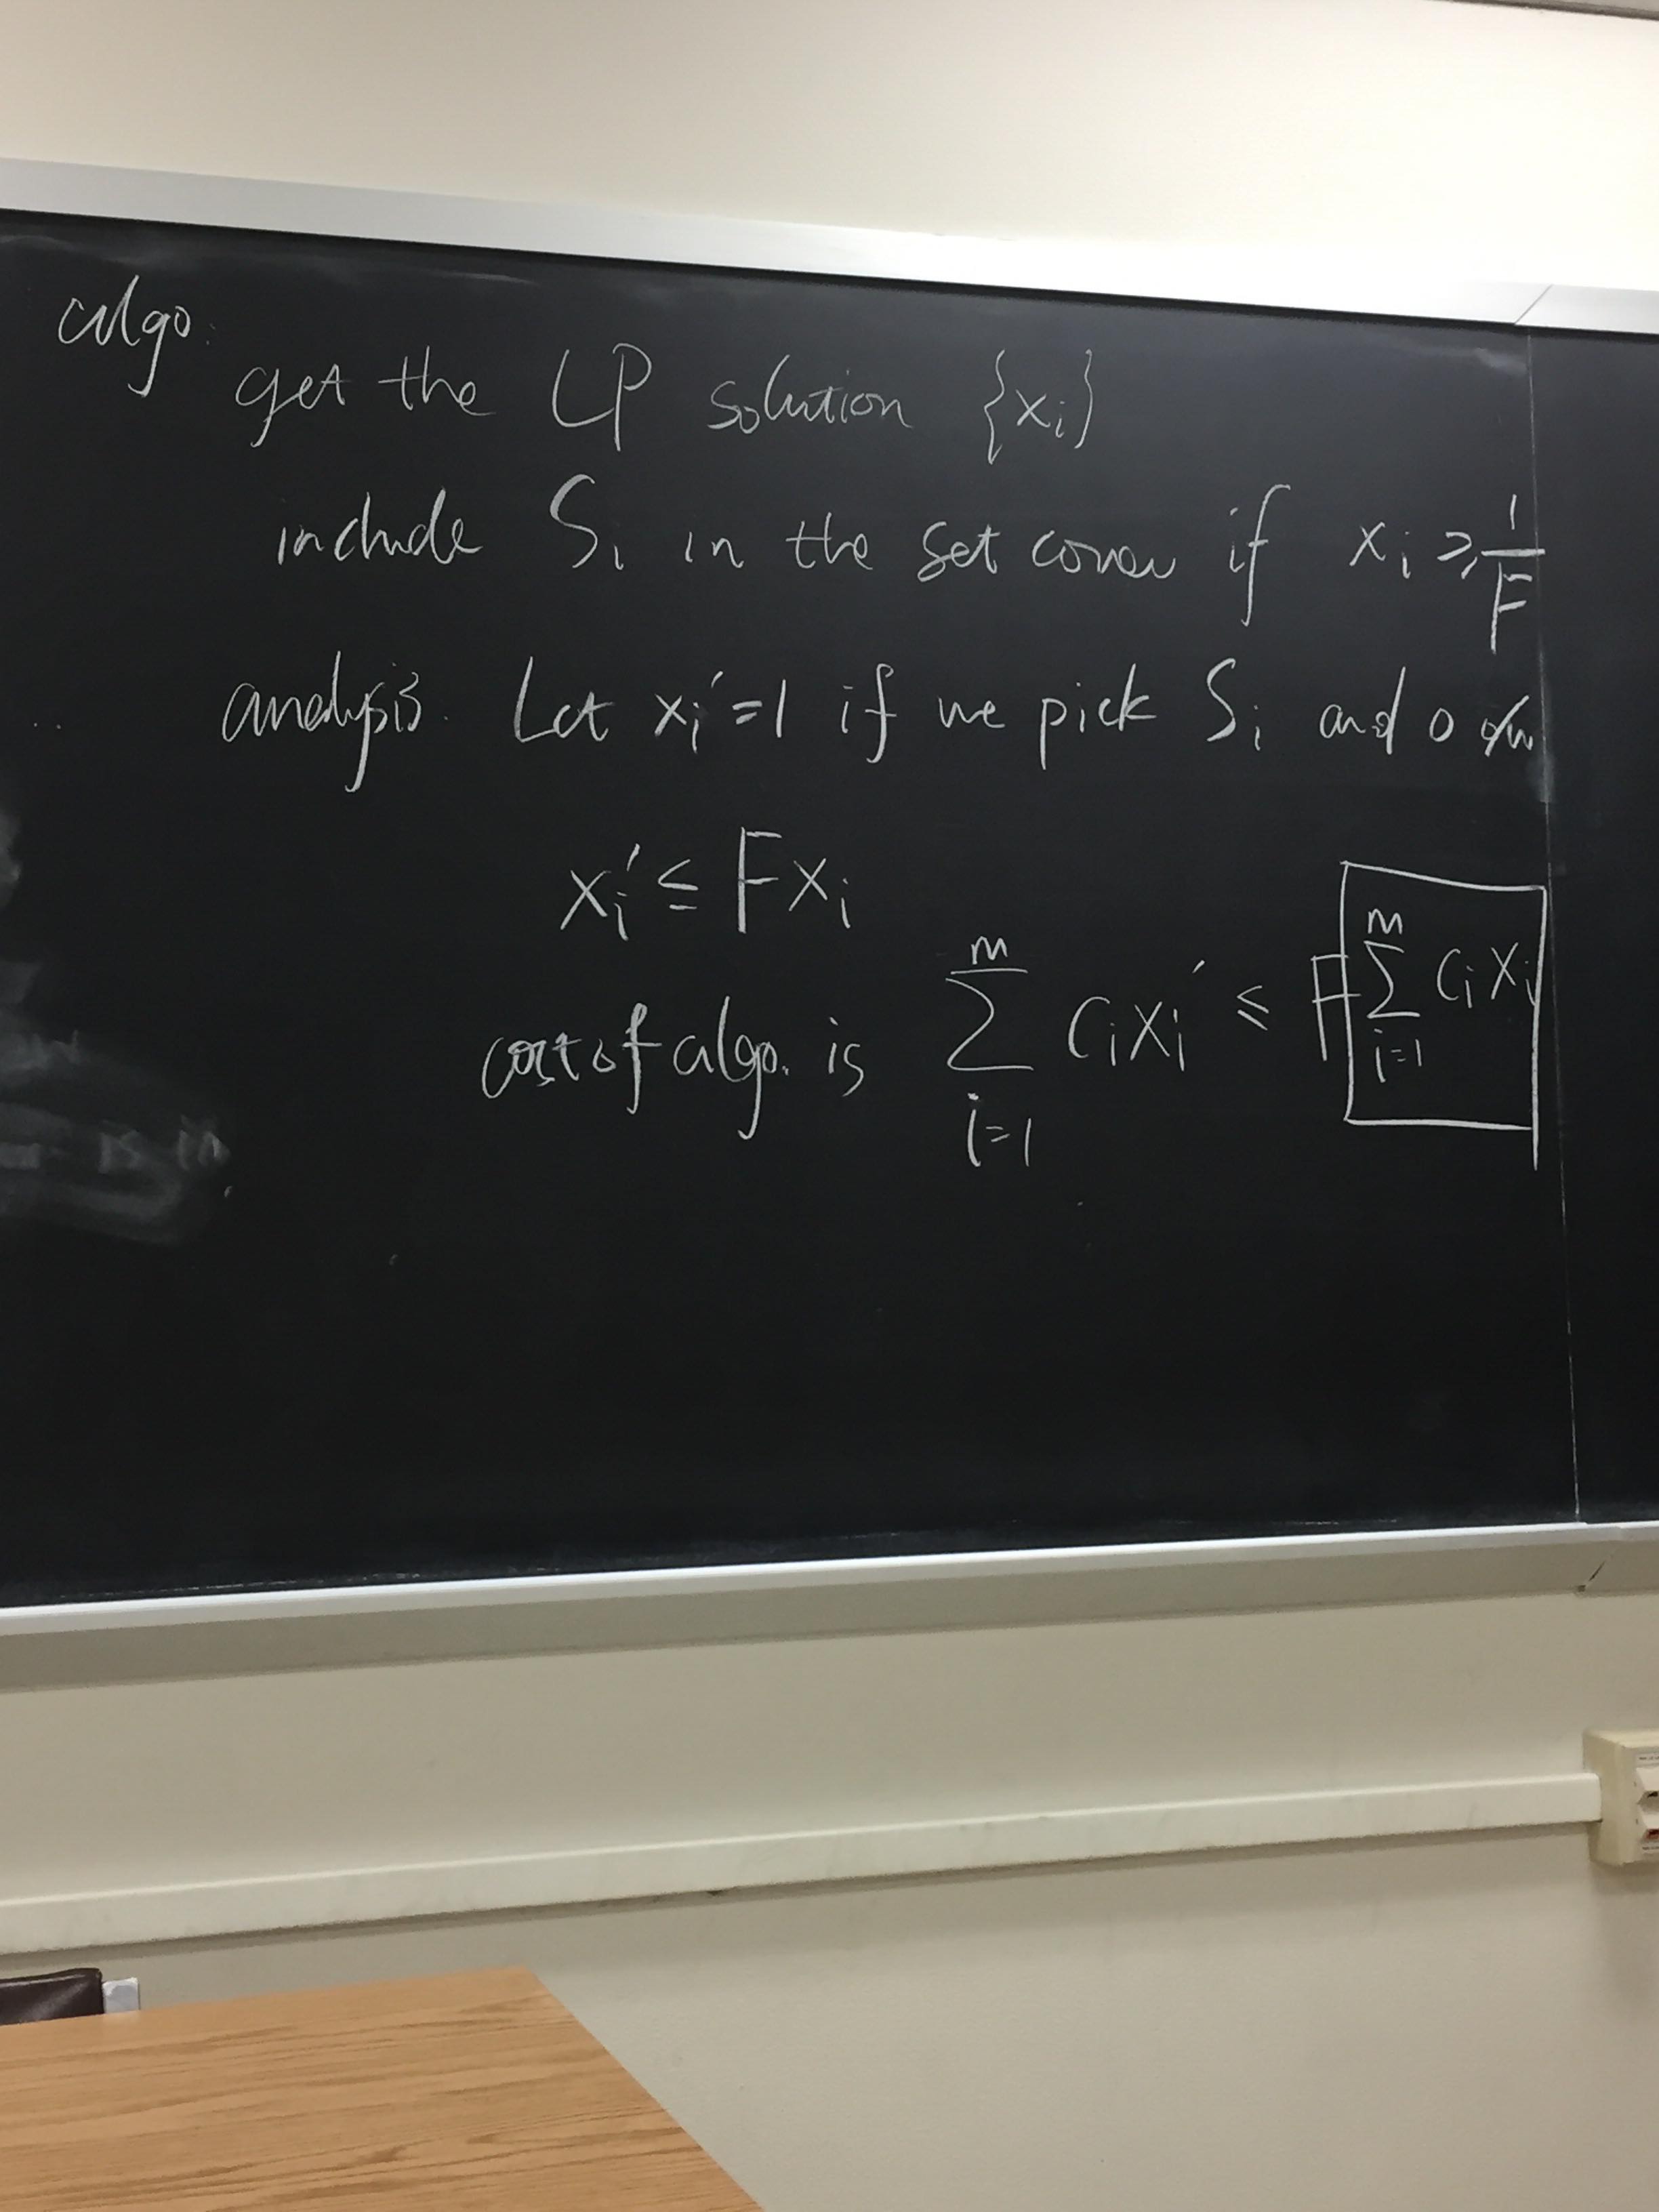 algo:
get the LP solution {xᵢ}
include Sᵢ in the set cover if xᵢ ≥ 1/F
analysis. Let xᵢ' = 1 if we pick Sᵢ and 0 o/w
xᵢ' ≤ Fxᵢ
cost of algo. is ∑_{i=1}^{m} Cᵢxᵢ' ≤ F ∑_{i=1}^{m} Cᵢxᵢ